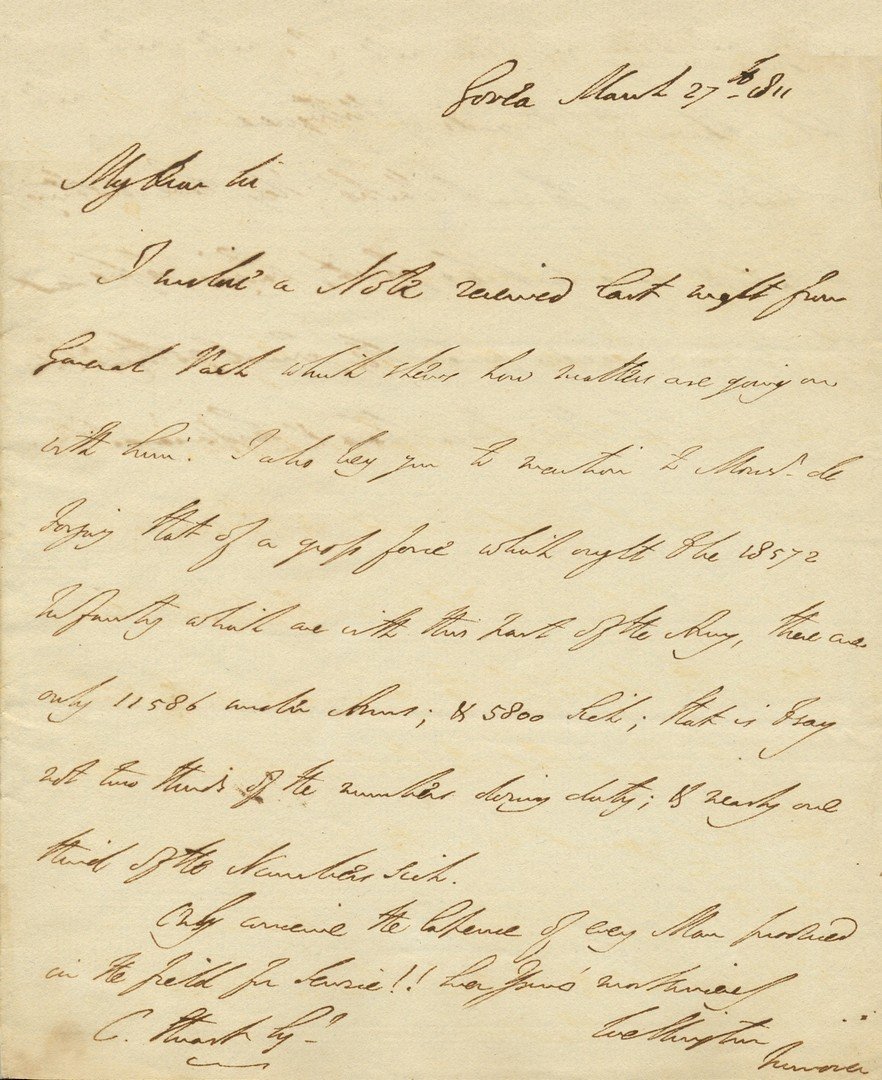 Govea March 27th 1811
My Dear Sir
I inclose a Note received last night from
General Pack which shews how matters are going on
with him. I also beg you to mention to Monsr. de
Forjaz that of a gross force which ought to be 18572
Infantry which are with this part of the Army, there are
only 11586 under Arms; & 5800 Sick; that is to say
not two thirds of the numbers doing duty; & nearly one
third of the Numbers Sick.
Only conceive the of every Man produced
in the field for Service!! Ever Yours most sincerely
C. Stuart Esqr. Wellington